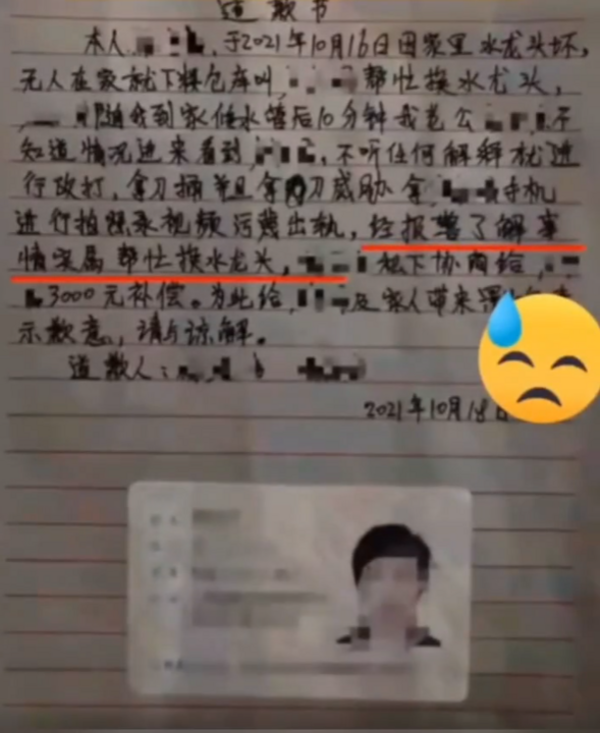 道歉书
本人,于2021年10月16日因家里水龙头坏,
无人在家就下粮仓库叫帮忙换水龙头,
随我到家修水管后10分钟我老公不
知道情况进来看到,不听任何解释就进
行改打,拿刀捅并且拿刀威胁拿手机
进行拍照录视频污蔑出轨,经报警了解事
情实属帮忙换水龙头,私下协商给,
3000元补偿。为此给及家人带来
示歉意,请与谅解。
道歉人:
2021年10月18日